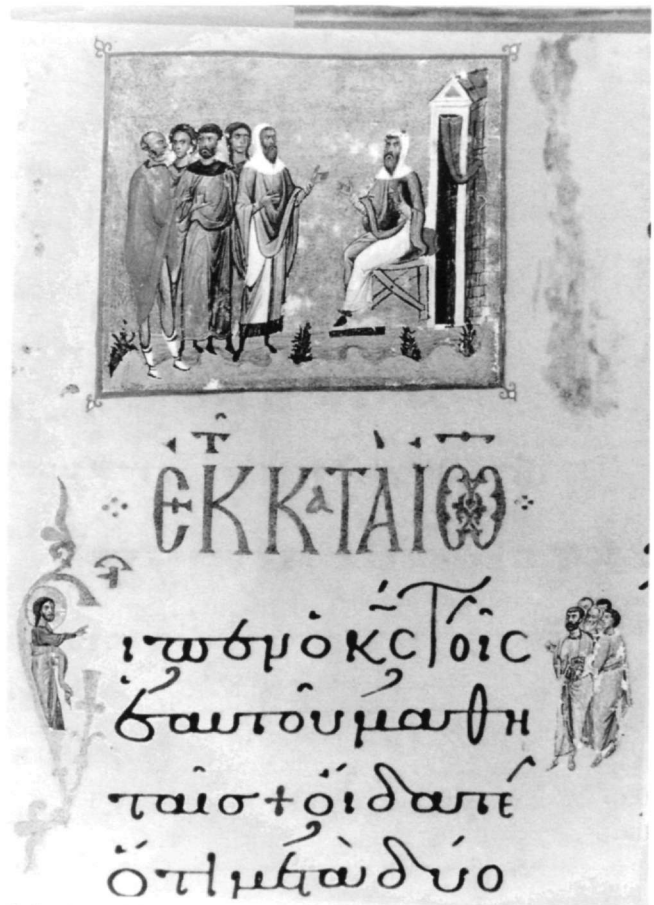 ἐκ τ κατὰ ιω
Εἶπεν ὁ κς τοῖς
ἑαυτοῦ μαθη
ταῖς + οἴδατε
ὅτι μετὰ δύο